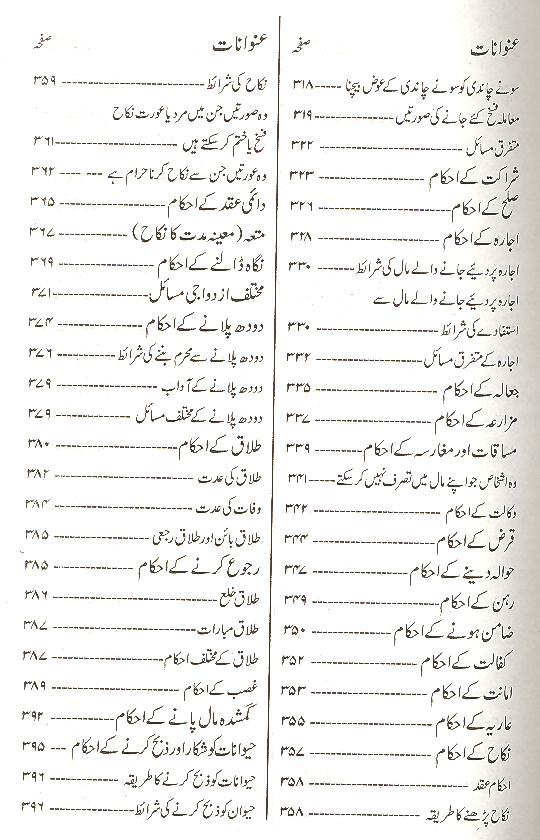 عنوانات صفحہ
سونے چاندی کو سونے چاندی کے عوض بیچنا ۳۱۸
معاملہ فسخ کئے جانے کی صورتیں ۳۱۹
متفرق مسائل ۳۲۲
شراکت کے احکام ۳۲۳
صلح کے احکام ۳۲۶
اجارہ کے احکام ۳۲۸
اجارہ پر دیئے جانے والے مال کی شرائط ۳۳۰
اجارہ پر دیئے جانے والے مال سے
استفادے کی شرائط ۳۳۰
اجارہ کے متفرق مسائل ۳۳۲
جعالہ کے احکام ۳۳۵
مزارعہ کے احکام ۳۳۷
مساقات اور مغارسہ کے احکام ۳۳۹
وہ اشخاص جو اپنے مال میں تصرف نہیں کر سکتے ۳۴۱
وکالت کے احکام ۳۴۲
قرض کے احکام ۳۴۴
حوالہ دینے کے احکام ۳۴۷
رہن کے احکام ۳۴۹
ضامن ہونے کے احکام ۳۵۰
کفالت کے احکام ۳۵۲
امانت کے احکام ۳۵۳
عاریہ کے احکام ۳۵۵
نکاح کے احکام ۳۵۷
احکام عقد ۳۵۸
نکاح پڑھنے کا طریقہ ۳۵۸
عنوانات صفحہ
نکاح کی شرائط ۳۵۹
وہ صورتیں جن میں مرد یا عورت نکاح
فسخ یا ختم کر سکتے ہیں ۳۶۱
وہ عورتیں جن سے نکاح کرنا حرام ہے ۳۶۲
دائمی عقد کے احکام ۳۶۵
متعہ (معینہ مدت کا نکاح) ۳۶۷
نگاہ ڈالنے کے احکام ۳۶۹
مختلف ازدواجی مسائل ۳۷۱
دودھ پلانے کے احکام ۳۷۴
دودھ پلانے سے محرم بننے کی شرائط ۳۷۶
دودھ پلانے کے آداب ۳۷۹
دودھ پلانے کے مختلف مسائل ۳۷۹
طلاق کے احکام ۳۸۰
طلاق کی عدت ۳۸۲
وفات کی عدت ۳۸۴
طلاق بائن اور طلاق رجعی ۳۸۵
رجوع کرنے کے احکام ۳۸۵
طلاق خلع ۳۸۶
طلاق مبارات ۳۸۷
طلاق کے مختلف احکام ۳۸۷
غصب کے احکام ۳۸۹
گمشدہ مال پانے کے احکام ۳۹۲
حیوانات کو شکار اور ذبح کرنے کے احکام ۳۹۵
حیوانات کو ذبح کرنے کا طریقہ ۳۹۶
حیوان کو ذبح کرنے کی شرائط ۳۹۶